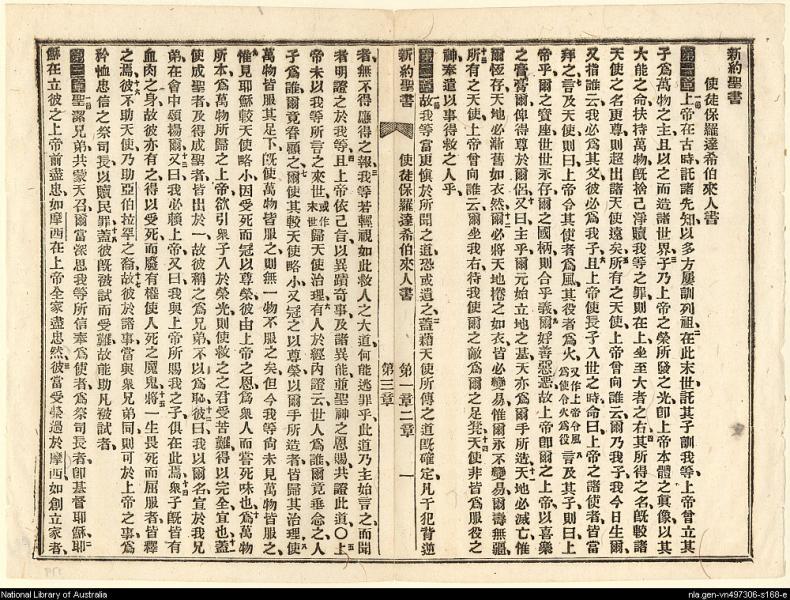 新約聖書
使徒保羅達希伯來人書
第一章一節上帝在古時託諸先知以多方屢訓列祖二在此末世託其子訓我等上帝曾立其
子爲萬物之主且以之而造諸世界三子乃上帝之榮所發之光卽上帝本體之眞像以其
大能之命扶持萬物旣捨己淨贖我等之罪則在上坐至大者之右四其所得之名旣較諸
天使之名更尊則超出諸天使遠矣五所有之天使上帝曾向誰云爾乃我子我今日生爾
又指誰云我必爲其父彼必爲我子六且上帝使長子入世之時命曰上帝之諸使者皆當
拜之七言及天使則曰上帝令其使者爲風其役者爲火又作上帝令風爲使令火爲役八言及其子則曰上
帝乎爾之寶座世世永存爾之國柄則合乎義九爾好善惡惡故上帝卽爾之上帝以喜樂
之膏膏爾俾得尊於爾侶十又曰主乎爾元始立地之基天亦爲爾手所造十一天地必滅亡惟
爾恆存天地必漸舊如衣然十二爾必將天地捲之如衣皆必變易惟爾永不變易爾壽無疆
十三所有之天使上帝曾向誰云爾坐我右待我使爾之敵爲爾之足凳十四天使非皆爲服役之
神奉遣以事得救之人乎
第二章一節故我等當更愼於所聞之道恐或遺之二蓋藉天使所傳之道旣確定凡干犯背逆
新約聖書 使徒保羅達希伯來人書 第一章二章 一
第三章
者無不得應得之報三我等若輕視如此救人之大道何能逃罪乎此道乃主始言之而聞
者明證之於我等四且上帝依己旨以異蹟奇事及諸異能並聖神之恩賜共證此道〇五上
帝未以我等所言之來世或作末世歸天使治理六有人於經內證云世人爲誰爾竟垂念之人
子爲誰爾竟眷顧之七爾使其較天使略小又冠之以尊榮以爾手所造者皆歸其治理八使
萬物皆服其足下旣使萬物皆服之則無一物不服之矣但今我等尙未見萬物皆服之九
惟見耶穌較天使略小因受死而冠以尊榮彼由上帝之恩爲衆人而嘗死味也十蓋萬物
所本爲萬物所歸之上帝欲引衆子入於榮光則使救之之君受苦難得以完全宜也十一蓋
使成聖者及得成聖者皆出於一故彼稱之爲兄弟不以爲恥十二彼曰我以爾名宣於我兄
弟在會中頌揚爾十三又曰我必賴上帝又曰我與上帝所賜我之子俱在此焉十四衆子旣皆有
血肉之身故彼亦有之得以受死而廢有權使人死之魔鬼十五將一生畏死而屈服者皆釋
之焉十六彼不助天使乃助亞伯拉罕之裔十七故彼於諸事當與衆兄弟同則可於上帝之事爲
矜恤忠信之祭司長以贖民罪十八蓋彼旣被試而受難故能助凡被試者
第三章一節聖潔兄弟共蒙天召爾當深思我等所信奉爲使者爲祭司長者卽基督耶穌二耶
穌在立彼之上帝前盡忠如摩西在上帝全家盡忠然三彼當受榮過於摩西如創立家者
National Library of Australia
nla.gen-vn497306-s168-e